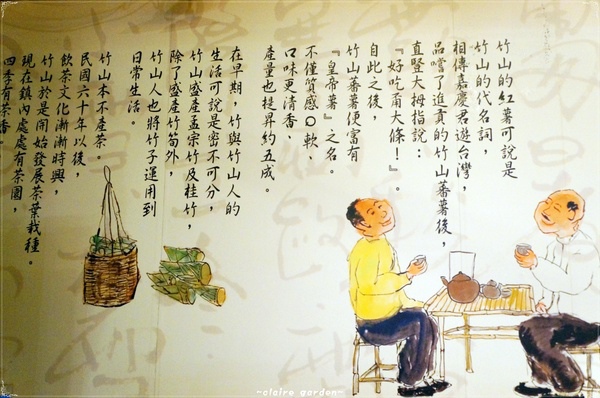 竹山的紅薯可說是
竹山的代名詞，
相傳嘉慶君遊台灣，
品嚐了進貢的竹山蕃薯後，
直豎大拇指說：
『好吃甭大條！』。
自此之後，
竹山蕃薯便富有
『皇帝薯』之名。
不僅質感Q軟、
口味更清香、
產量也提昇約五成。
在早期，竹與竹山人的
生活可說是密不可分，
竹山盛產孟宗竹及桂竹，
除了盛產竹筍外，
竹山人也將竹子運用到
日常生活。
竹山本不產茶。
民國六十年以後，
飲茶文化漸漸時興，
竹山於是開始發展茶葉栽種。
現在鎮內處處有茶園，
四季有茶香。
~claire garden~